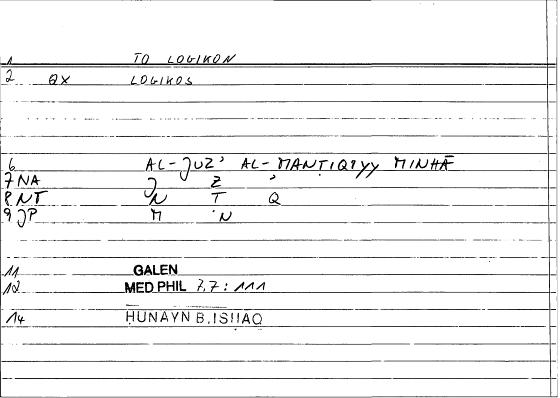 1 TO LOGIKON
2 QX LOGIKOS
6 AL-JUZ' AL-MANṬIQIYY MINHĀ
7 NA J Z '
8 NT N T Q
9 JP M N
11 GALEN
12 MED PHIL 7,7: 111
14 ḤUNAYN B. ISḤĀQ